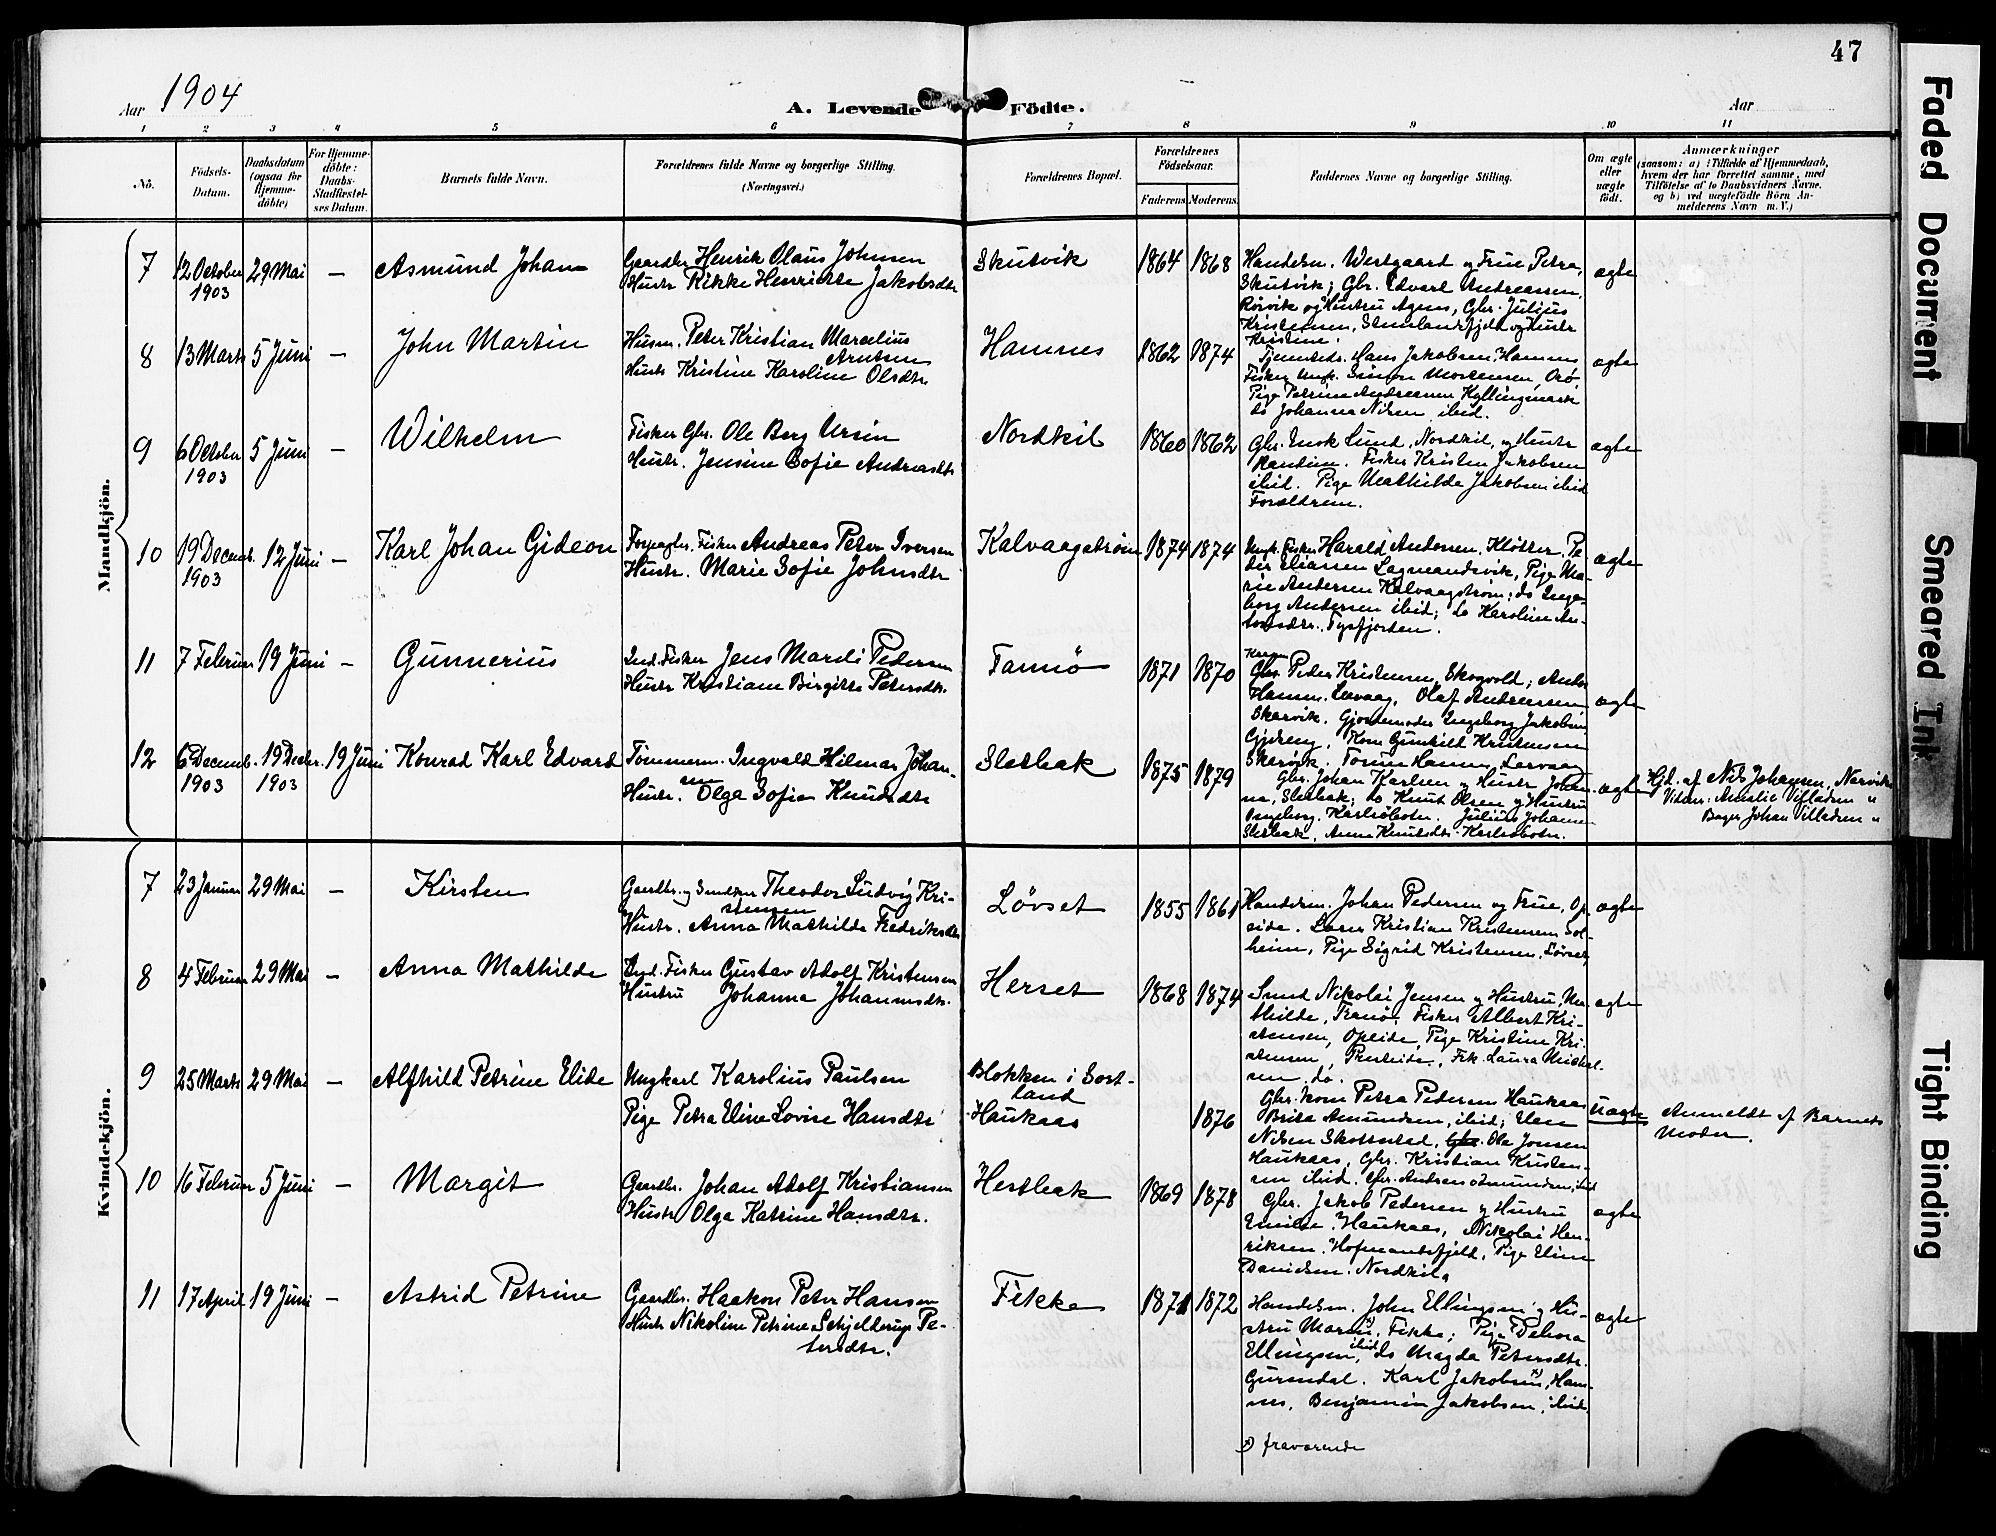 47
Aar 1904
A. Levende Födte.
Aar
1 2 3 4 5 6 7 8 9 10 11
Nô.
Födsels-
Datum.
Daabsdatum
(ogsaa for
Hjemme-
döbte)
For Hjemme-
döbte:
Daabs-
Stadfæstel-
ses Datum.
Barnets fulde Navn.
Forældrenes fulde Navne og borgerlige Stilling.
(Næringsvei.)
Forældrenes Bopæl.
Forældrenes
Födselsaar.
Faderens Moderens
Faddernes Navne og borgerlige Stilling.
Om ægte
eller
uægte
födt.
Anmærkninger
(saasom: a) i Tilfælde af Hjemmedaab,
hvem der har forrettet samme, med
Tilföielse af to Daabsvidners Navne,
og b) ved uægtefödte Börn An-
melderens Navn m. V.)
Mandkjön.
7 12 October 29 Mai – Asmund Johan
1903
Gaardbr. Henrik Olaus Johnsen
Hustr. Rikke Henriette Jakobsdtr
Skutvik 1864 1868
Handelsm. Westgaard og Frue Petra,
Skutvik; Gbr. Edvard Andreassen,
Rörvik og Hustru Agnes, Gbr. Julius
Kristensen, og Hustr
Kristine.
ægte
8 13 Marts 5 Juni – John Martin
Husm. Peter Kristian Marcelius
Arntsen
Hustr Kristine Karoline Olsdtr
Hamnes 1862 1874
Hans Jakobsen, Hamnes
Fisker Ungk. Simon Mortensen, Orö,
Pige Petrine Andreassen Kyllingmark
do Johanna Nilsen ibid.
ægte
9 6 October 5 Juni – Wilhelm
1903
Fisker Gbr. Ole Berg Ursin
Hustr. Jensine Sofie Andreasdtr
Nordkil 1860 1862
Gbr. Enok Lund, Nordkil, og Hustr
Fisker Kristen Jakobsen
ibid. Pige Mathilde Jakobsen ibid
Forældrene.
ægte
10 19 Decemb. 12 Juni – Karl Johan Gideon
1903
Fisker Andreas Peter Iversen
Hustr. Marie Sofie Johnsdtr
Kalvaagström 1874 1874
Ungk. Fisker Harald Andersen, Pe-
der Eliassen Lagmandsvik, Pige Ma-
rie Andersen Kalvaagström; do Inge-
borg Andersen ibid; do Karoline An-
tonsdtr. Tysfjorden.
ægte
11 7 Februar 19 Juni – Gunnerius
Ind. Fisker Jens Mardi Pedersen
Hustr Kristiane Birgitte Petersdtr.
Tannö 1871 1870
Gbr. Peder Kristensen, Skogvold; Anders
Hansen, Lørvaag, Olaf Andreassen
Skarvik, Gjordemoder Ingeborg Jakobsen
Kone Gunhild Kristensen
Skarvik.
ægte
12 6 Decemb. 19 Decbr. 19 Juni Konrad Karl Edvard
1903 1903
Tömmerm. Ingvald Hilmar Johan-
sen
Hustr. Olga Sofie Knudsdtr
Sletbak 1875 1879
Gbr. Johan Karlsen og Hustr Johan-
na, Sletbak; do Knut Olsen og Hustru
Ingeborg, Karlsöbotn. Julius Johansen
Sletbak, Anna Knutsdtr Karlsöbotn.
ægte
Hjd. af Nils Johansen, Narvik
Vidner: Amalie Villadsen "
Bager Johan Villadsen "
Kvindekjön.
7 23 Januar 29 Mai – Kirsten
Gaardbr. og Theodor Ludvig Kri-
stensen
Hustr. Anna Mathilde Fredriksdtr
Lövset 1855 1861
Handelsm. Johan Pedersen og Frue, Op-
eide. Kristian Kristensen Sol-
heim, Pige Sigrid Kristensen, Lövset,
ægte
8 4 Februar 29 Mai – Anna Mathilde
Ind. Fisker Gustav Adolf Kristensen
Hustru Johanna Johannesdtr.
Herset 1868 1874
Smed Nikolai Jensen og Hustru, Ma-
thilde, Tranö, Fisker Albert Kri-
stensen, Opeide, Pige Kristine Kri-
stensen, Presteide, Frk. Laura Michel-
sen do.
ægte
9 25 Marts 29 Mai – Alfhild Petrine Elide
Ungkarl Karolius Paulsen
Pige Petra Eline Lovise Hansdtr
Blokken i Sort-
land
Haukaas 1876
Gbr. kone Petra Pedersen Haukaas
Brita Amundsen, ibid; Elen
Nilsen Skottestad, Gbr. Ole Jonsen
Haukaas, Gbr. Kristian Kristen-
sen ibid. Gbr. Andreas Amundsen, ibid
uægte
Anmeldt af Barnets
Moder.
10 16 Februar 5 Juni – Margit
Gaardbr. Johan Adolf Kristiansen
Hustr Olga Katrine Hansdtr.
Hestbak 1869 1878
Gbr. Jakob Pedersen og Hustru
Emilie, Haukaas, Nikolai Hen-
riksen, Hofmandsfjeld, Pige Eline
Danielsen, Nordkil.
ægte
11 17 April 19 Juni – Astrid Petrine
Gaardbr. Haakon Peter Hansen
Hustr Nikoline Petrine Schjelderup Pe-
tersdtr.
Fikke 1871 1872
Handelsm. John Ellingsen og Hu-
stru Maren x), Fikke; Pige Debora
Ellingsen, ibid, do Magda Petersdtr.
Gursndal. Karl Jakobsen x), Ham-
nes, Benjamin Jakobsen, ibid.
ægte
x) fraværende
Faded Document
Smeared Ink
Tight Binding